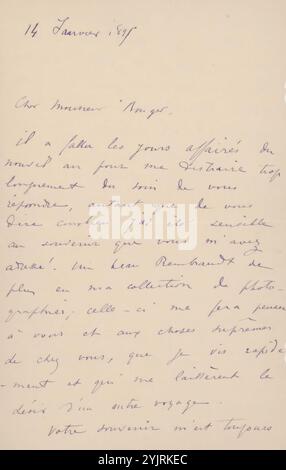 14 Janvier 189
Cher Monsieur Rouger.
il a fallu les jours affairés du
nouvel an pour me distraire trop
longuement du soin de vous
répondre, autant que de vous
dire combien j'ai été sensible
au souvenir que vous m'avez
adressé. Un beau Rembrandt de
plus en ma collection de photo-
graphies; celle-ci me fera penser
à vous et aux choses suprêmes
de chez vous, que je vis rapide
-ment et qui me laissèrent le
désir d'un autre voyage.
Votre souvenir m'est toujours
alamy
Image ID: 2YJRKEC
www.alamy.com